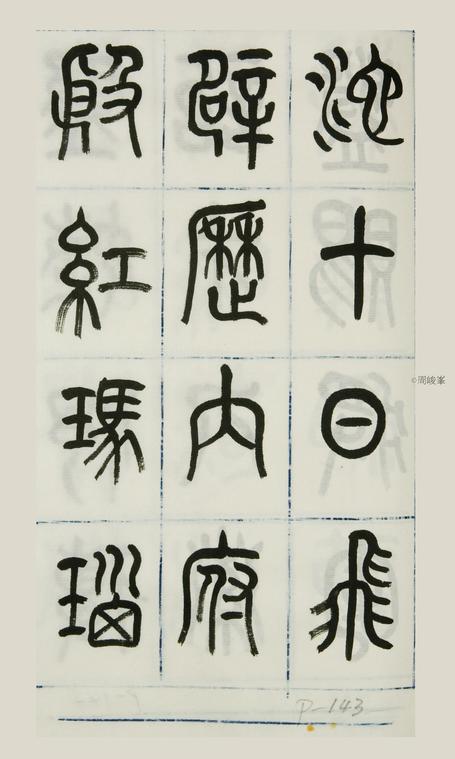 池十日飛
辟歷內府
殷紅瑪瑙
P-143
©周峻峯